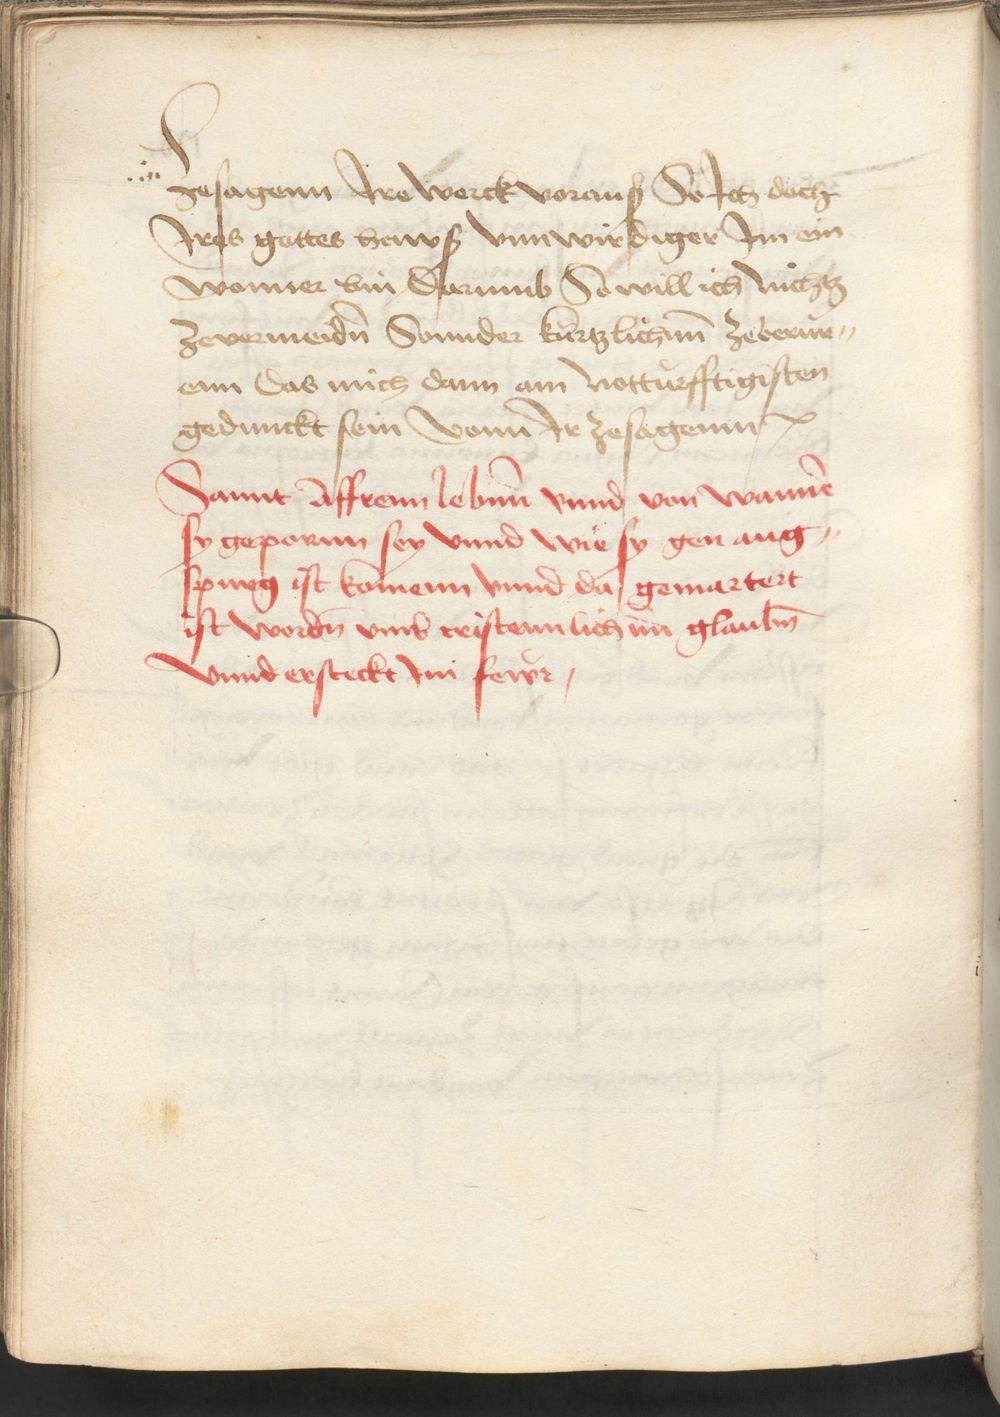 zesagenn Ire werck vorauß So Ich doch
Ires gottes hawß vnnwirdiger Inn ein
woner bin Darumb So will ich nichtz
zevermeidn̄ Sonnder kurtzlichnn̄ zeberur„
enn Das mich dann am notturfftigisten
gedunckt sein vonn Ir zesagenn
Sannt Affrenn lebnn̄ vnnd von wannē
sy gepornn sey vnnd wie sy gen aug„
spurg ist komenn vnnd da gemartert
ist wordn̄ vmb cristennlichnn glaubn̄
vnnd ersteckt Im fewr